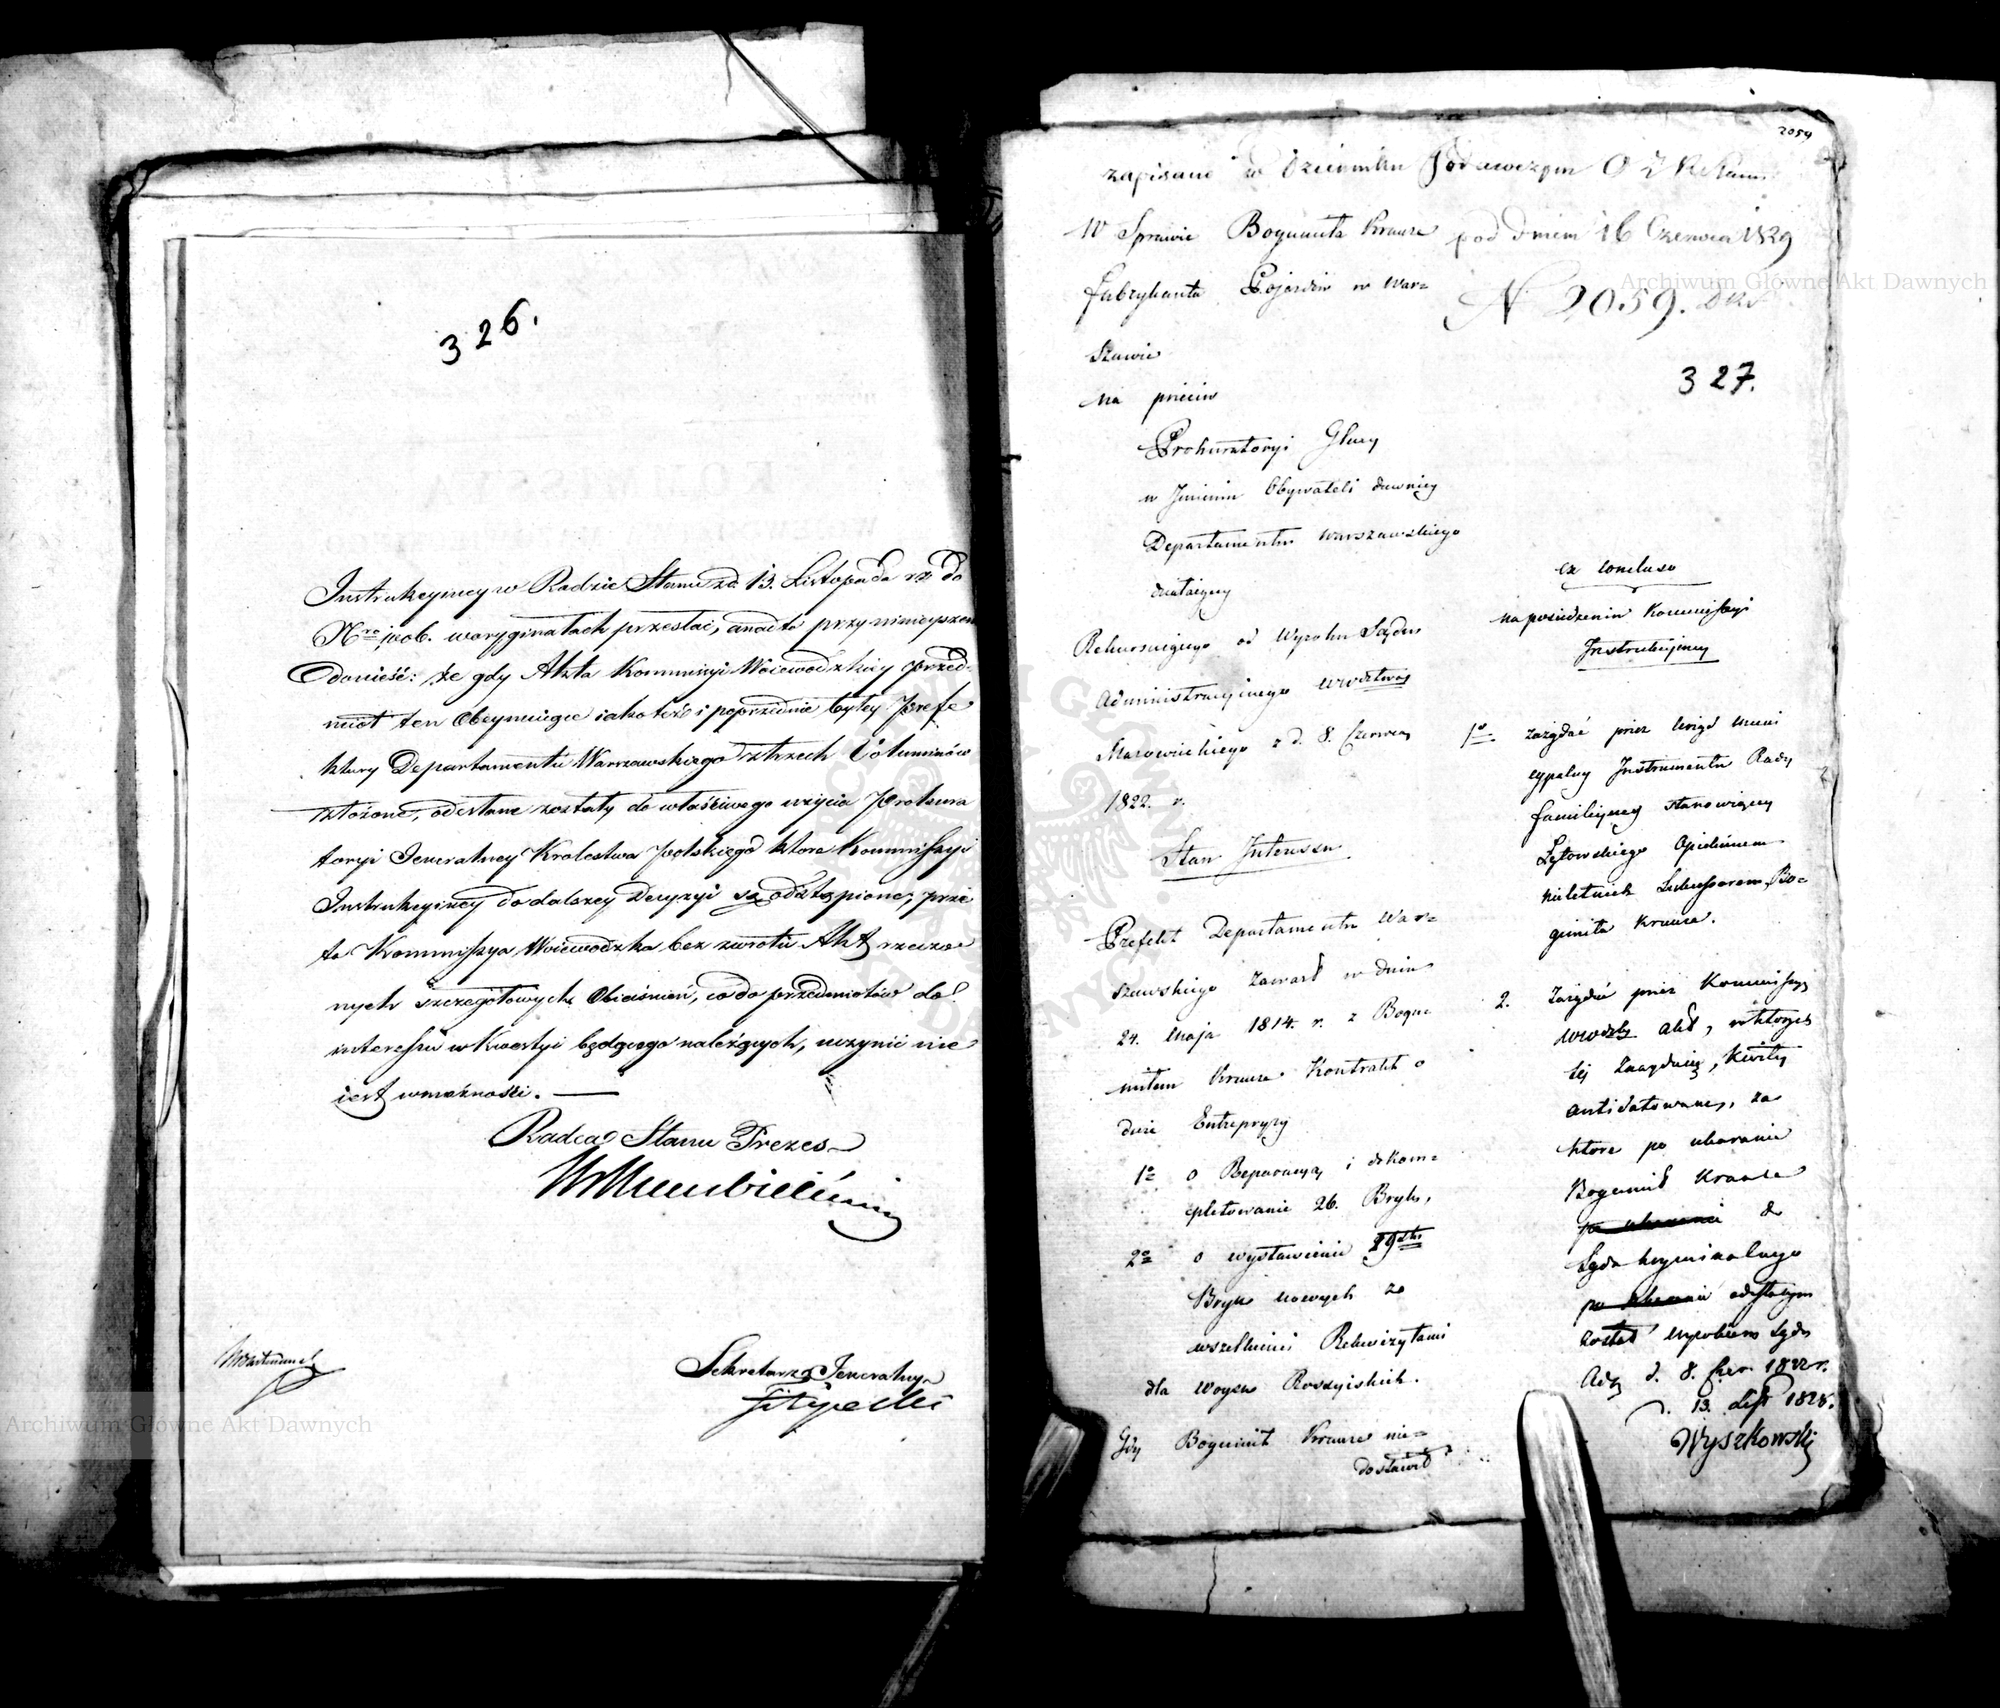 326.
Instrukcyiney w Radzie Stanu z d. 13. Listopada rb do
Nro 1206. w oryginałach przesłać, a nadto przy ninieyszem
donieść: że gdy Akta Kommissyi Woiewodzkiey przed-
miot ten Obeymuiące iako też i poprzednio byłey Prefe
ktury Departamentu Warszawskiego z trzech Voluminów
złożone, odesłane zostały do właściwego użycia Prokura
toryi Jeneralney Królestwa Polskiego która Kommissyi
Instrukcyiney do dalszey Decyzyi są odstąpione, prze
to Kommissya Woiewodzka bez zwrotu Akt rzeczo
nych szczegółowych Obiaśnień, co do przedmiotów do
interessu w kwestyi będącego należących, uczynić nie
iest w możności. —
Radca Stanu Prezes
Sekretarz Jeneralny
Filipecki
2059
zapisano w Dzienniku Podawczym
pod dniem 16 Czerwca 1829
N 2059.
327.
W Sprawie Bogumiła Krause
fabrykanta Pojazdów w War=
szawie
na przeciw
Prokuratoryi Glney
w Jmieniu Obywateli dawniey
Departamentu Warszawskiego
działaiącey
Rekursuiącego od Wyroku Sądu
Administracyinego Wwdztwa
Mazowieckiego z d. 8. Czerwca
1822. r.
Stan Interessu
Prefekt Departamentu War=
szawskiego zawarł w dniu
24. Maja 1814. r. z Bogu
miłem Krause Kontrakt o
dwie Entrepryzy
1o o Reparacyą i skom=
pletowanie 26. Bryk,
2o o wystawienie
Bryk nowych ze
wszelkiemi Rekwizytami
dla Woysk Rossyiskich.
Gdy Bogumił Krause nie=
dostawił
ex concluso
na posiedzeniu Kommissyi
Instrukcyiney
1o zażądać przez Urząd Muni
cypalny Instrumentu Rady
familiyney stanowiącey
Łętowskiego Opiekunem
nieletnich Sukcessorów Bo=
gumiła Krause.
2. Zażądać przez Kommissyą
Wwdzką akt, w których
się znayduią, Kwity
antidatowane, za
które po ukaranie
Bogumił Krause
do
Sądu kryminalnego
odesłanym
został wyrokiem Sądu
Adm d. 8. Czer. 1822 r.
d. 13. List 1828.
Wyszkowski
Archiwum Główne Akt Dawnych
Archiwum Główne Akt Dawnych